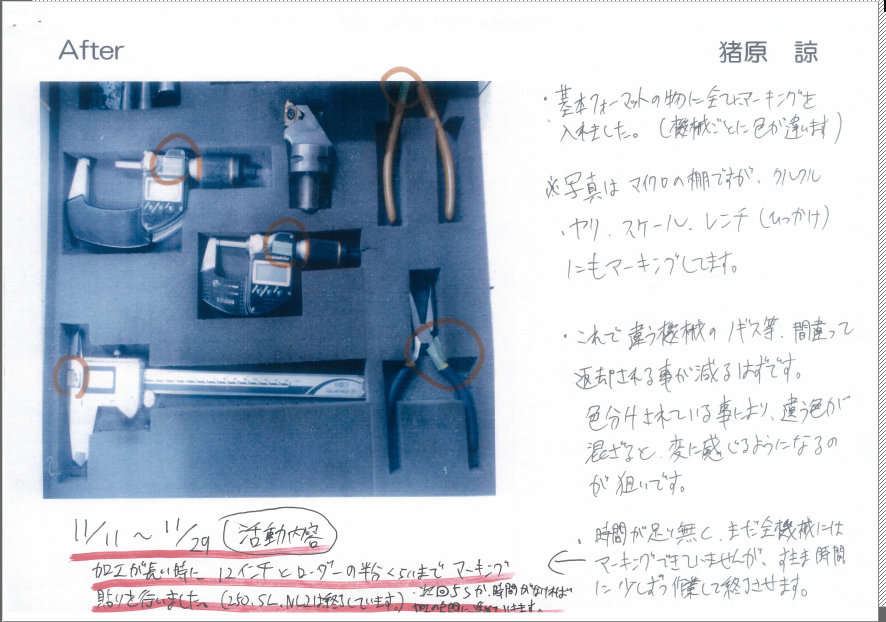 After
猪原 諒
・基本フォーマットの物に全てにマーキングを
入れました。(機械ごとに色が違います)
※写真はマイクロの棚ですが、クルクル
、ヤリ、スケール、レンチ(ひっかけ)
にもマーキングしてます。
・これで違う機械のノギス等、間違って
返却される事が減るはずです。
色分けされている事により、違う色が
混ざると、変に感じるようになるの
が狙いです。
・時間が足り無く、まだ全機械には
マーキングできていませんが、すきま時間
に少しずつ作業して終了させます。
11/11 ~ 11/29 活動内容
加工が長い時に 12インチとローダーの半分くらいまで マーキング
貼りを行いました。(250, SL, NL2は終了しています)
・次回5Sか、時間が